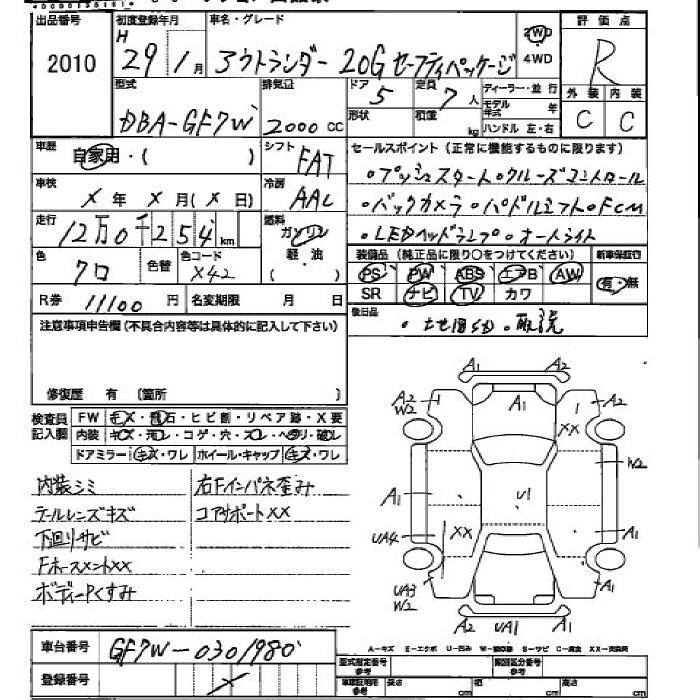 出品番号 初度登録年月 車名・グレード 評価点
2010 H 29年1月 アウトランダー 20G セーフティパッケージ 2WD 4WD R
型式 排気量 ドア 5 定員 7人 ディーラー・並行 外装 内装
DBA-GF7W 2000cc 形状 積載 kg モデル年式 年 ハンドル 左・右 C C
車歴 自家用・( ) シフト FAT セールスポイント(正常に機能するものに限ります)
車検 X年X月(X日) 冷房 AAC ・プッシュスタート・クルーズコントロール
走行 12万0千254km 燃料 ガソリン 軽・油 ( ) ・バックカメラ・パドルシフト・FCM
・LEDヘッドランプ・オートライト
色 クロ 色替 色コード X42 装備品(純正品に限り○をつけてください) 新車保証書
PS PW ABS エアB AW 有・無
R券 11100円 名変期限 月 日 SR ナビ TV カワ
注意事項申告欄(不具合内容等は具体的に記入して下さい) 後日品 ・地図SD・取説
修復歴 有 (箇所 )
検査員記入欄 FW キズ・飛石・ヒビ割・リペア跡・X要
内装 キズ・汚レ・コゲ・穴・スレ・ヘタリ・破レ
ドアミラー キズ・ワレ ホイール・キャップ キズ・ワレ
内装シミ 右Fインパネ歪み
テールレンズキズ コアサポートXX
下廻りサビ
FホースメントXX
ボディーPくすみ
A1 A2
A2 W2 A1 A2
XX
W2
A1 U1
UA4 XX A1
UA3 W2 A1
A2 UA1 A2
車台番号 GF7W-0301980
A-キズ E-エクボ U-凹み W-補修跡 S-サビ C-腐食 XX-交換済
登録番号 X 型式指定番号 参考 類別区分番号 参考
車庫証明用 参考 長さ cm 幅 cm 高さ cm